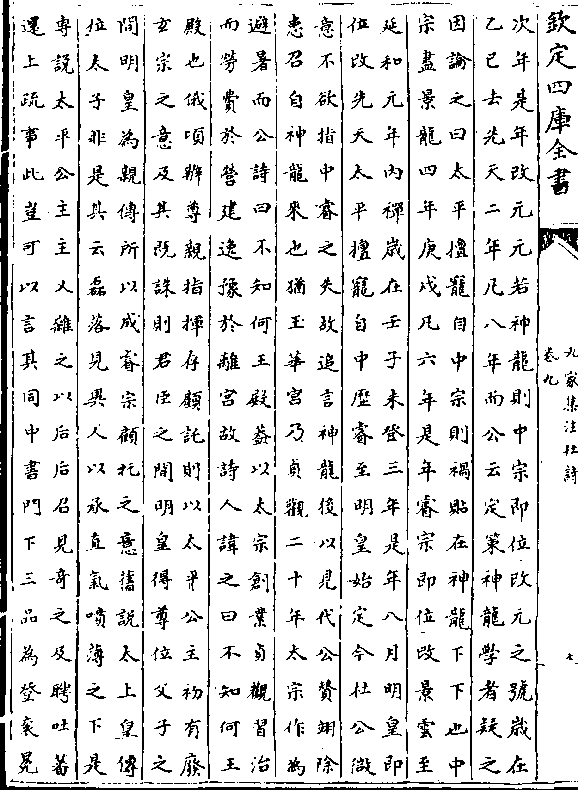 欽定四庫全書
九家集注杜詩
卷九
七
次年是年改元元若神龍則中宗即位改元之號歲在
乙巳去先天二年凡八年而公云定策神龍學者疑之
因論之曰太平擅寵自中宗則禍貽在神龍下下也中
宗盡景龍四年庚戌凡六年是年睿宗即位改景雲至
延和元年內禪歲在壬子未登三年是年八月明皇即
位改先天太平擅寵自中歷睿至明皇始定今杜公微
意不欲指中睿之失故追言神龍後以見代公贊翊除
患召自神龍來也猶玉華宮乃貞觀二十年太宗作為
避暑而公詩曰不知何王殿葢以太宗創業貞觀習治
而勞費於營建逸豫於離宮故詩人諱之曰不知何王
殿也俄頃辦尊親指揮存顧託則以太平公主初有廢
玄宗之意及其既誅則君臣之間明皇得尊位父子之
間明皇為親傳所以成睿宗顧托之意舊說太上皇傳
位太子非是其云磊落見異人以承直氣噴薄之下是
專說太平公主主人雖之以后后召見奇之及聘吐蕃
還上疏事此豈可以言其同中書門下三品為登衮冕